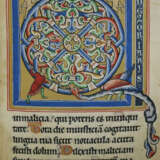 inmalicia , qui potens es in iniqui
tate Tota die iniusticiam cogitauit
lingua tua sicut nouacula acuta
fecisti dolum . Dilexisti maliciam